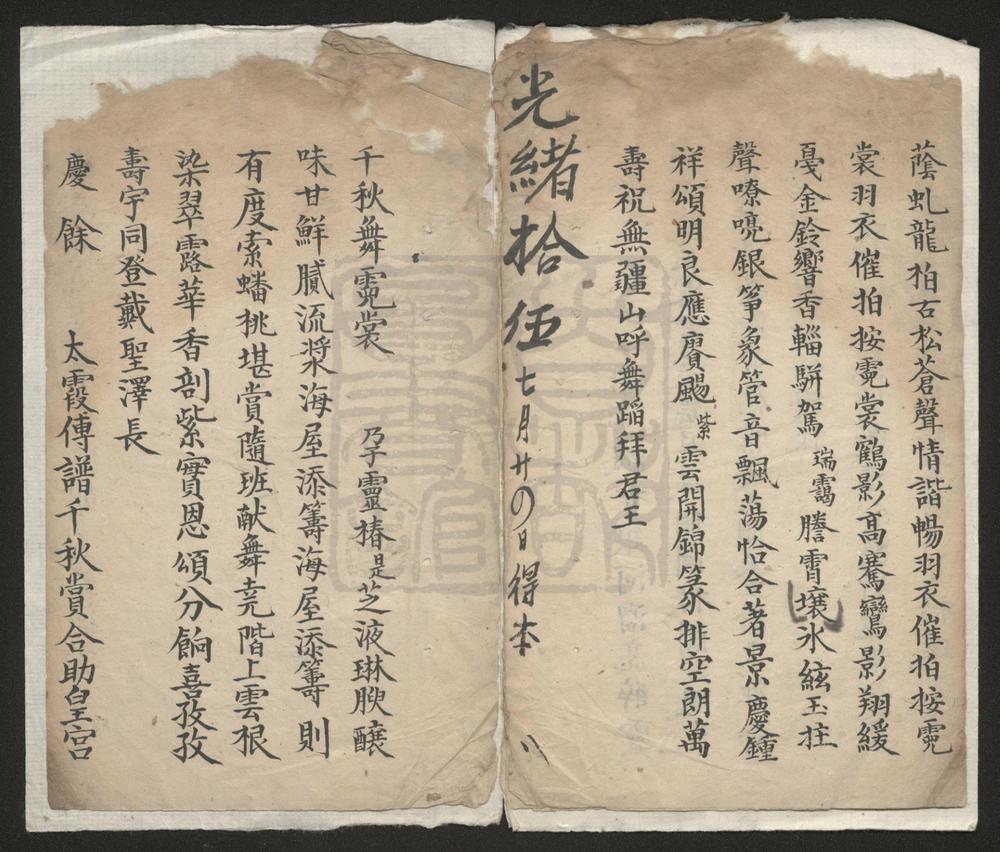 蔭虬龍柏古松蒼聲情諧暢羽衣催拍按霓
裳羽衣催拍按霓裳鶴影高騫鸞影翔緩
戛金鈴響香輜駢駕瑞靄謄霄壤氷絃玉拄
聲嘹喨銀箏象管音飄蕩恰合著景慶鍾
祥頌明良應賡颺紫雲開錦篆排空朗萬
壽祝無疆山呼舞蹈拜君王
光緒拾伍七月廿の日得本
千秋舞霓裳 乃子靈椿是芝液琳腴釀
味甘鮮膩流漿海屋添籌海屋添籌則
有度索蟠桃堪賞隨班献舞堯階上雲根
染翠露華香剖紫實恩頌分餉喜孜孜
壽宇同登戴聖澤長
慶餘 太霞傅譜千秋賞合助皇宮